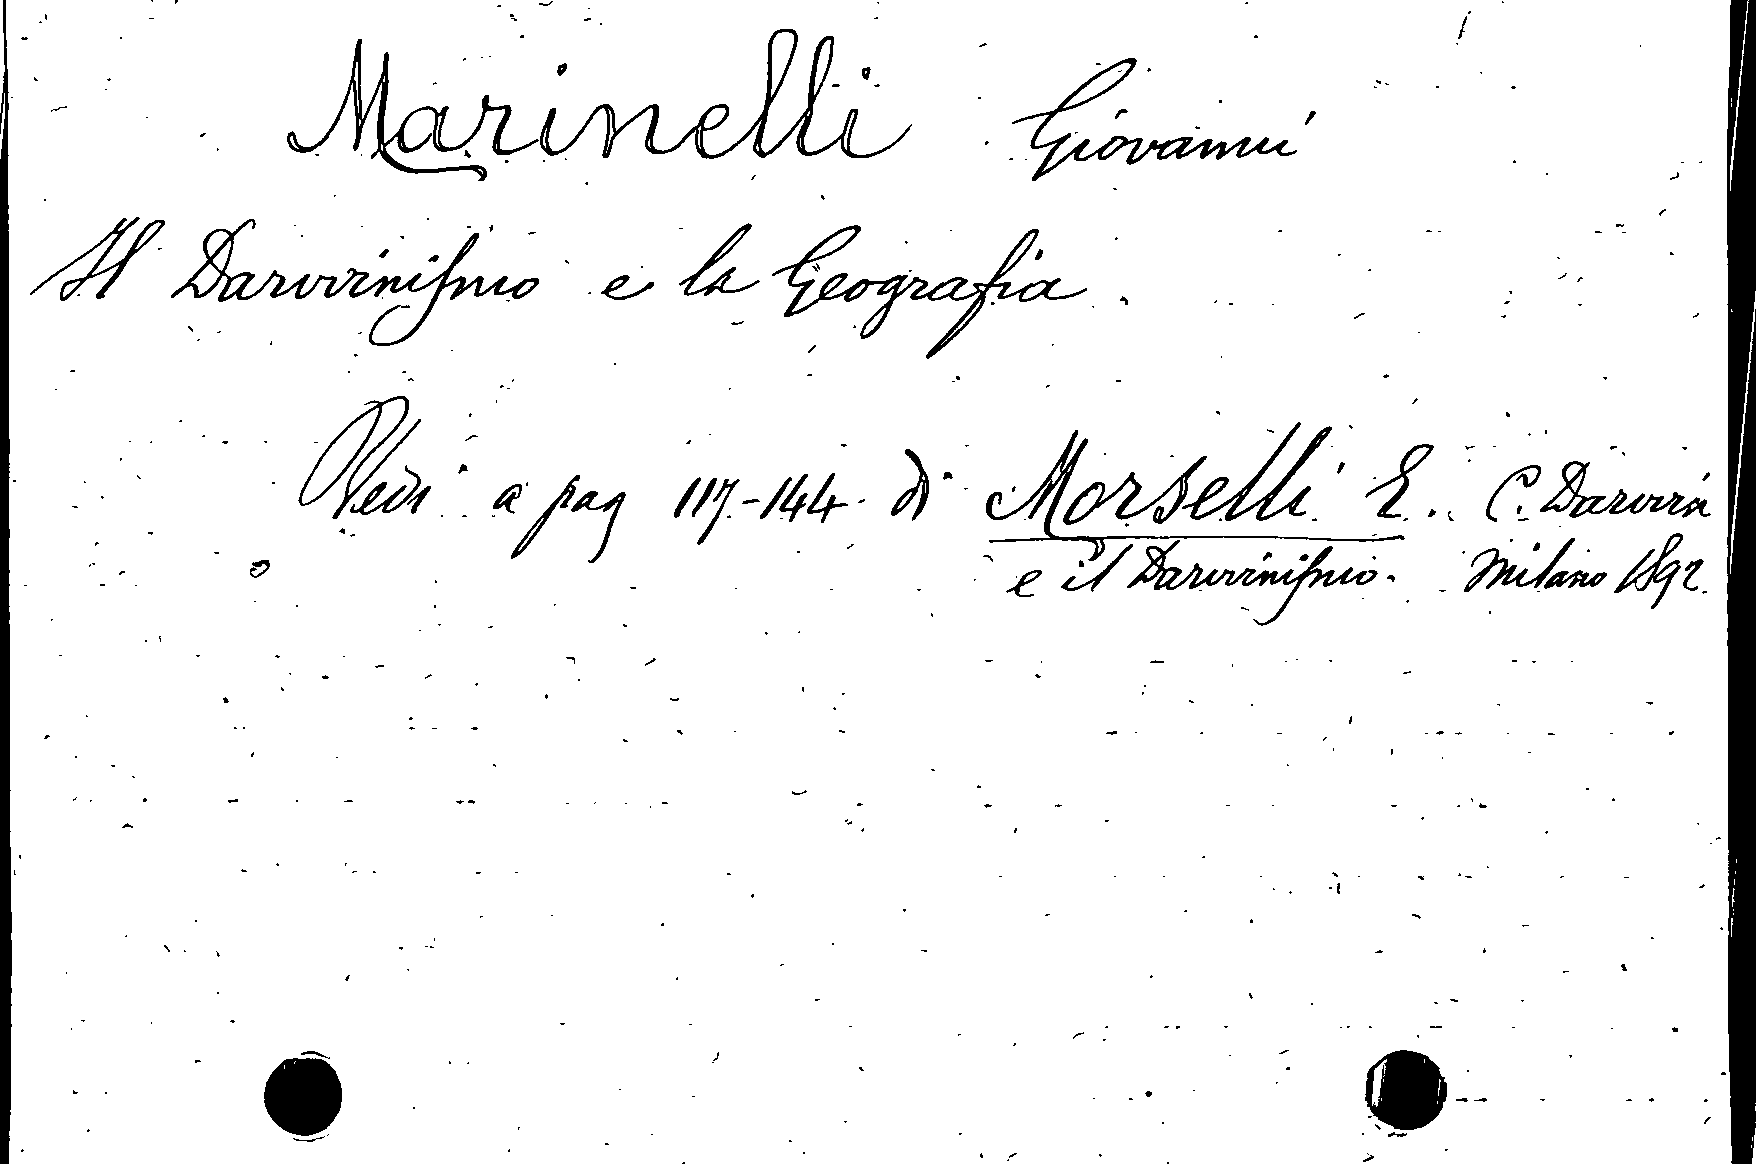 Marinelli Giovanni
Il Darwinismo e la Geografia.
Vedi a pag 117-144 di Morselli E. C. Darwin
e il Darwinismo. Milano 1892.